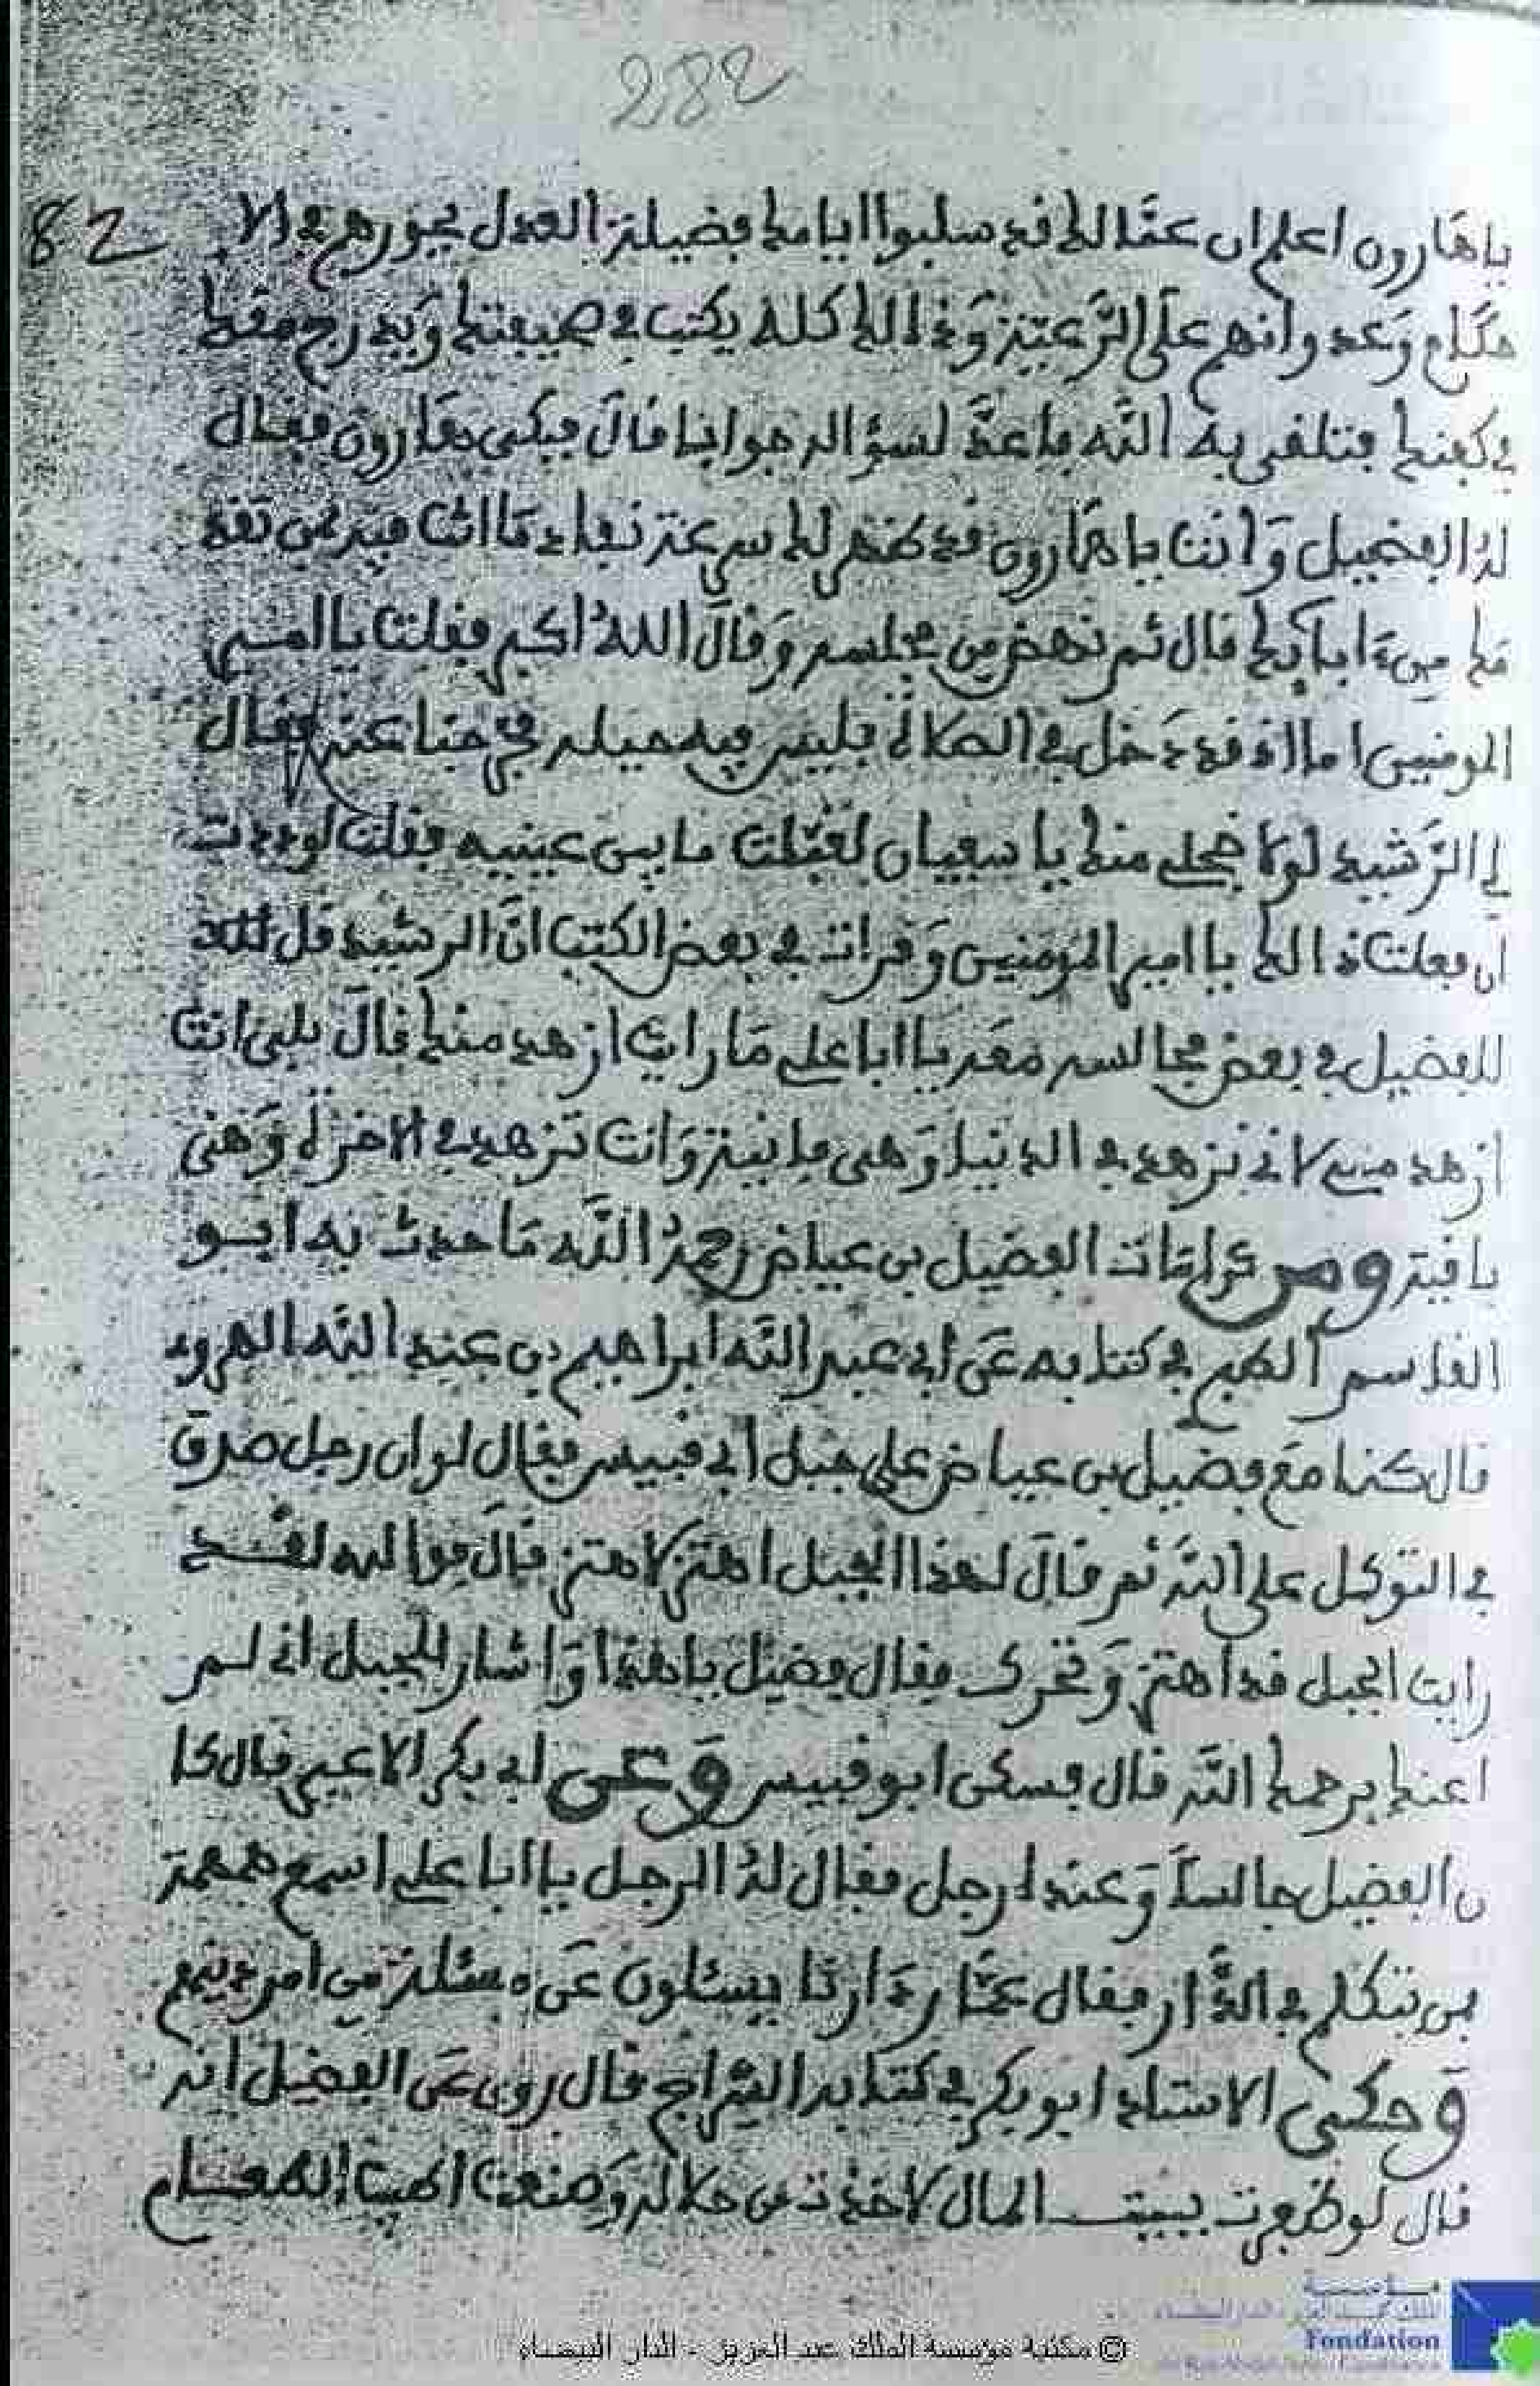 282
82
يا هارون اعلم ان عمالك قد سلبوا ايامك فضيلة العدل بجورهم في الا
حكام وعدوانهم على الرعية وذالك كله يكتب في صحيفتك ويدرج معك
في كفنك فتلقى به الله فاعد لسؤاله جوابا قال فبكى هارون فقال
له الفضيل وانت يا هارون قد ظهر لك سرعة نفاد ما انت فيه بمن تقد
مك من ءابايك قال ثم نهض من مجلسه وقال الله اكبر فقلت يا امير
المومنين اما اذ قد دخل في الصلاة فليس فيه حيلة فخرجنا عنه فقال
لي الرشيد لولا خجلي منك يا سفيان لقبلت ما بين عينيه فقلت لوددت
ان فعلت ذالك يا امير المؤمنين وقرات في بعض الكتب ان الرشيد قال
للفضيل في بعض مجالسه معه يا ابا علي ما رايت ازهد منك قال بلى انت
ازهد مني لاني نزهد في الدنيا وهى فانية وانت تزهد في الاخرة وهى
باقية ومن كرامات الفضيل بن عياض رحمه الله ما حدث به ابو
القاسم في كتابه عن ابي عبد الله ابراهيم بن عبد الله الهروي
قال كنا مع فضيل بن عياض على جبل ابي قبيس فقال لو ان رجل صدق
في التوكل على الله ثم قال لهذا الجبل اهتز لاهتز قال فوالله لقد
رايت الجبل قد اهتز وتحرك فقال فضيل يا هذا واشار للجبل اني لم
اعنك يرحمك الله قال فسكن ابو قبيس وعن ابي بكر قال كا
ن الفضيل جالسا وعنده رجل فقال له الرجل يا ابا علي اسمع همهمة
من يتكلم في الدار فقال عمار دارنا يسئلون عن مسئلة من امر دينهم
وحكى الاستاذ ابو بكر في كتابه السراج قال روى عن الفضيل انه
قال لو ظفرت ببيت المال لاخذت من حلاله وصنعت اطيب الطعام
© مكتبة مؤسسة الملك عبد العزيز - الدار البيضاء
Fondation